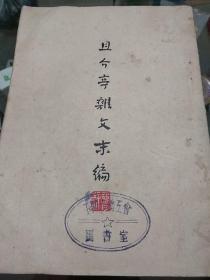 且介亭雜文末編
圖書室